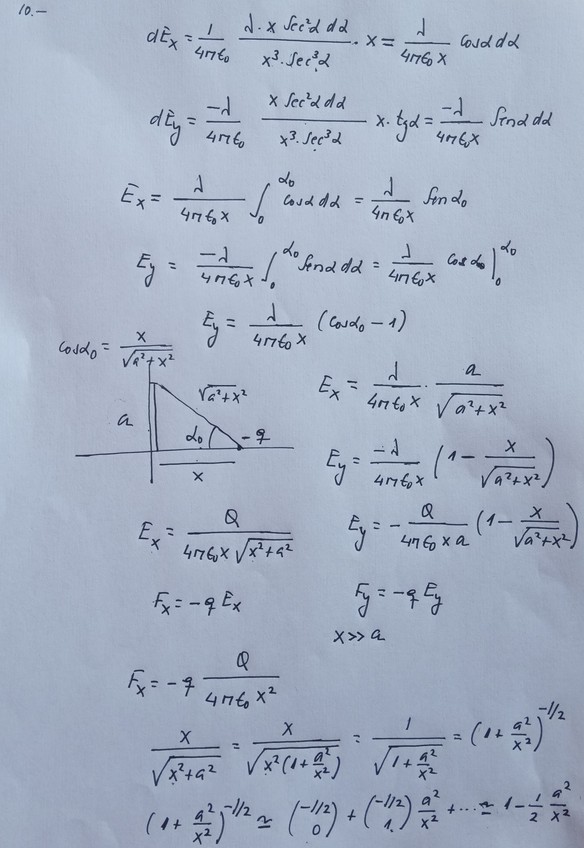 10.-
dE_x = 1/(4πε₀) · (λ·x sec²α dα)/(x³·sec³α) · x = λ/(4πε₀x) cosα dα
dE_y = -λ/(4πε₀) (x sec²α dα)/(x³·sec³α) x·tgα = -λ/(4πε₀x) senα dα
E_x = λ/(4πε₀x) ∫₀^α₀ cosα dα = λ/(4πε₀x) senα₀
E_y = -λ/(4πε₀x) ∫₀^α₀ senα dα = λ/(4πε₀x) cosα₀ |₀^α₀
E_y = λ/(4πε₀x) (cosα₀ - 1)
cosα₀ = x/√(a²+x²)
a
√(a²+x²)
α₀
-q
x
E_x = λ/(4πε₀x) · a/√(a²+x²)
E_y = -λ/(4πε₀x) (1 - x/√(a²+x²))
E_x = Q/(4πε₀x√(x²+a²))
E_y = -Q/(4πε₀xa) (1 - x/√(a²+x²))
F_x = -q E_x
F_y = -q E_y
x >> a
F_x = -q Q/(4πε₀x²)
x/√(x²+a²) = x/√(x²(1+a²/x²)) = 1/√(1+a²/x²) = (1+a²/x²)^(-1/2)
(1+a²/x²)^(-1/2) ≃ (-1/2 0) + (-1/2 1) a²/x² + ... ≃ 1 - 1/2 a²/x²